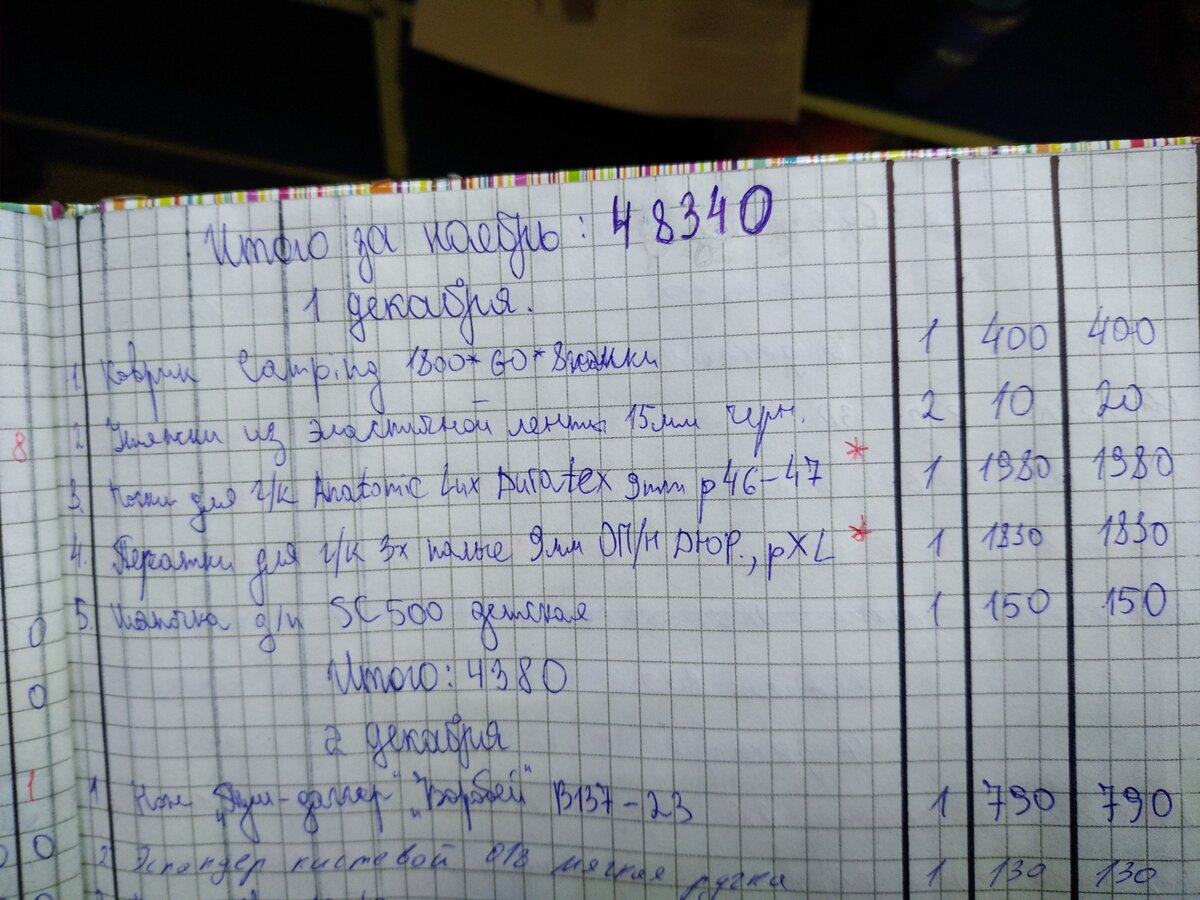 Итого за ноябрь: 48340
1 декабря.
1. Коврик Camping 1800*60*8 1 400 400
2 Утяжки из эластичной ленты 15мм черн. 2 10 20
8
3. Носки для г/к Anatomic Lux Duratex 9mm р46-47 * 1 1980 1980
4. Перчатки для г/к 3х палые 9мм ОП/Н ДЮР., рXL * 1 1830 1830
0 5. Шапочка д/п SC500 детская 1 150 150
Итого: 4380
0
2 декабря
1 1 Нож "Пуш-даггер" "Воробей" B137-23 1 790 790
0 2 Эспандер кистевой 018 мягкая ручка 1 130 130